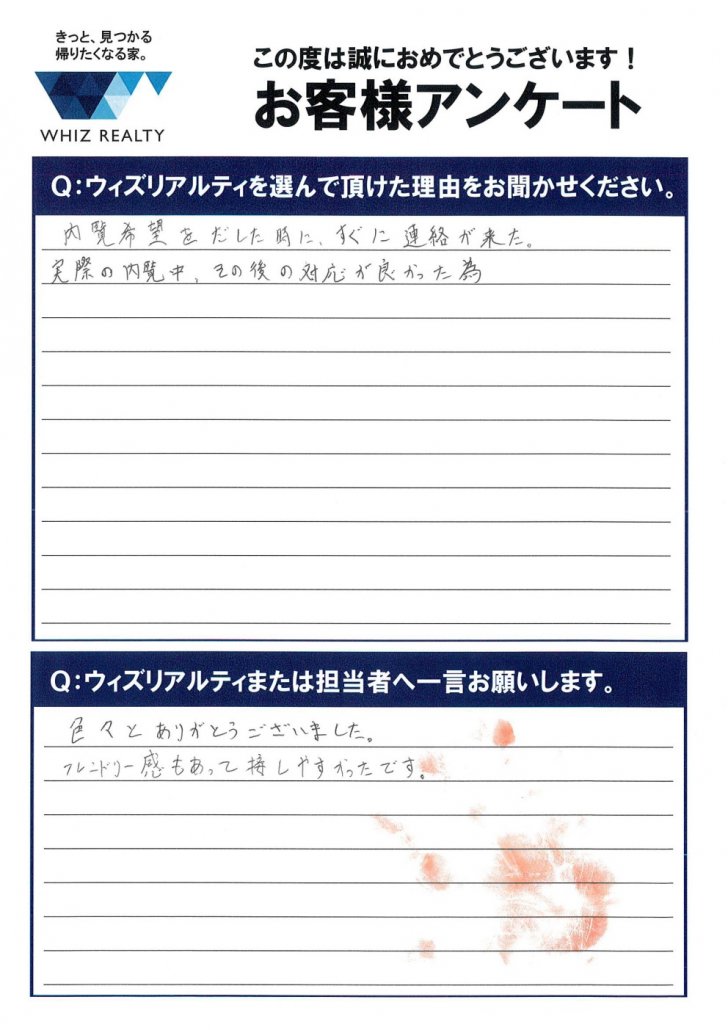 きっと、見つかる
帰りたくなる家。
WHIZ REALTY
この度は誠におめでとうございます！
お客様アンケート
Q：ウィズリアルティを選んで頂けた理由をお聞かせください。
内覧希望をだした時に、すぐに連絡が来た。
実際の内覧中、その後の対応が良かった為
Q：ウィズリアルティまたは担当者へ一言お願いします。
色々とありがとうございました。
フレンドリー感もあって接しやすかったです。